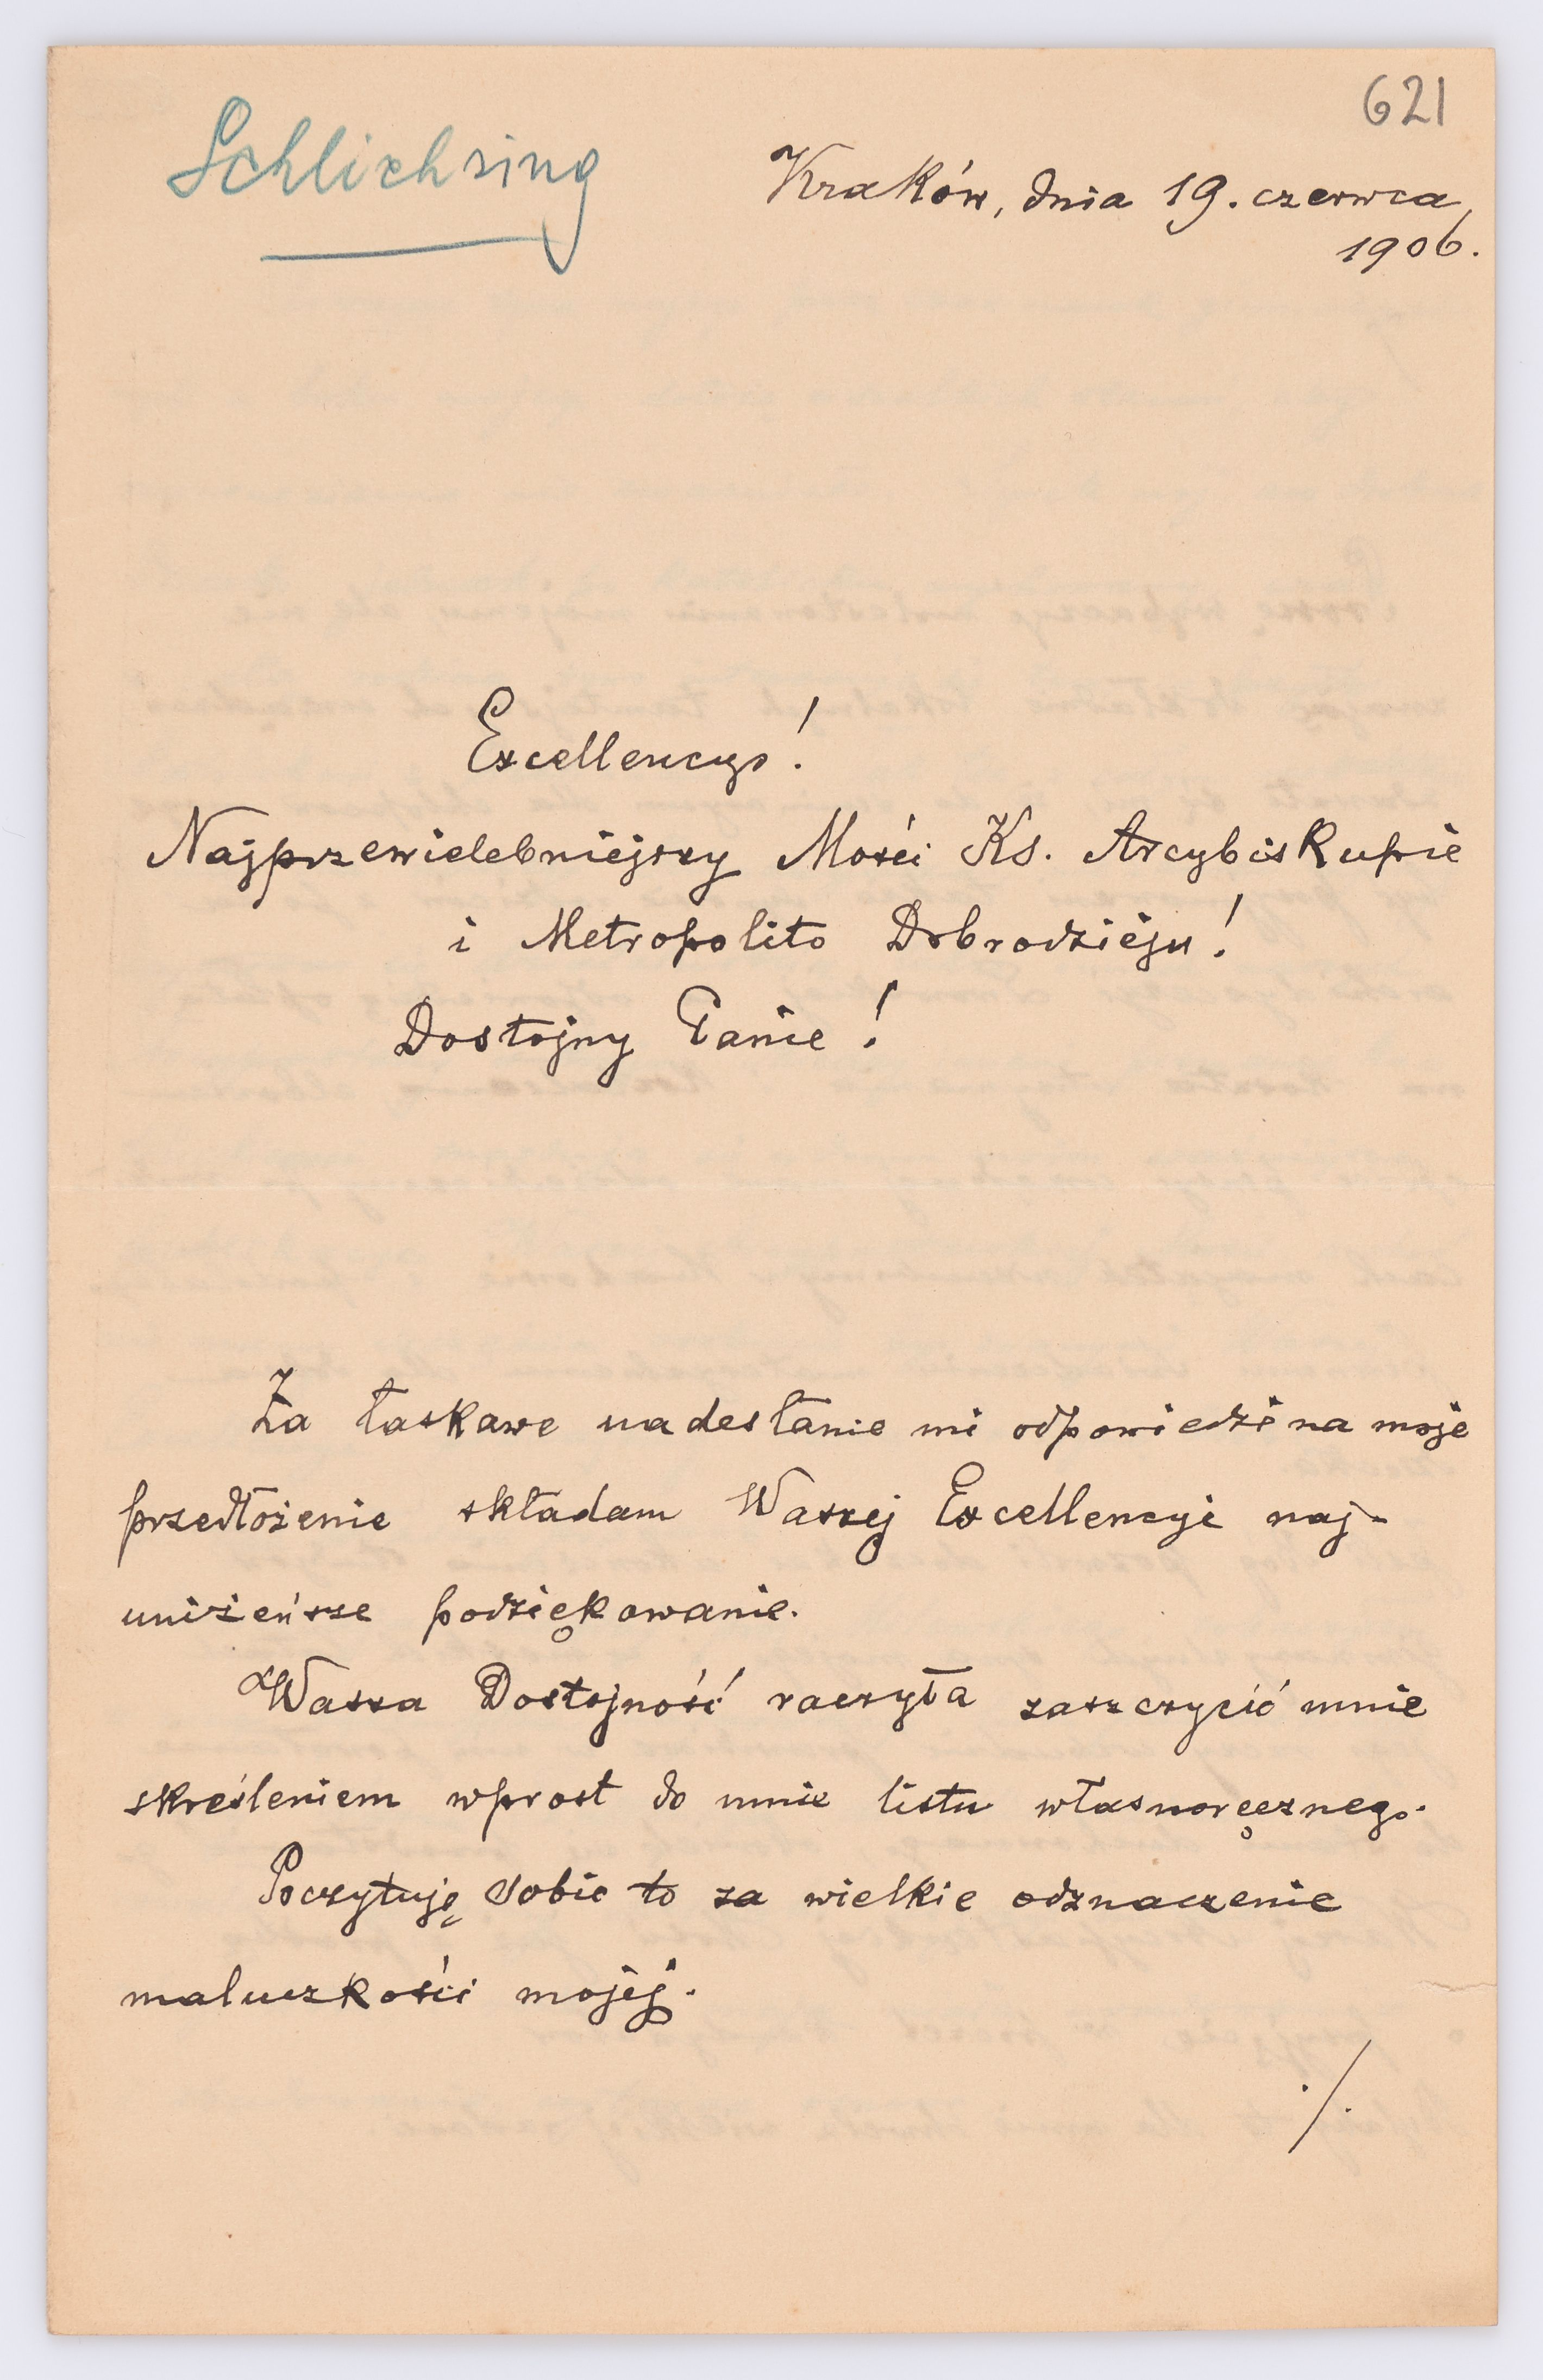 621
Schlichsing
Kraków, dnia 19. czerwca
1906.
Excellencyo!
Najprzewielebniejszy Mości Ks. Arcybiskupie
i Metropolito Dobrodzieju!
Dostojny Panie!
Za łaskawe nadesłanie mi odpowiedzi na moje
przedłożenie składam Waszej Excellencyi naj-
uniżeńsze podziękowanie.
Wasza Dostojność raczyła zaszczycić mnie
skreśleniem wprost do mnie listu własnoręcznego.
Poczytuję sobie to za wielkie odznaczenie
maluczkości mojej.
./.